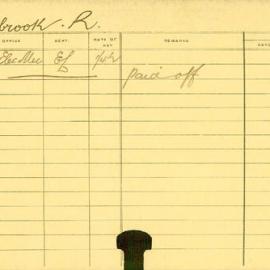 brook . R.
OFFICE DEPT. RATE OF PAY REMARKS DATE
Elec Mec EL paid off